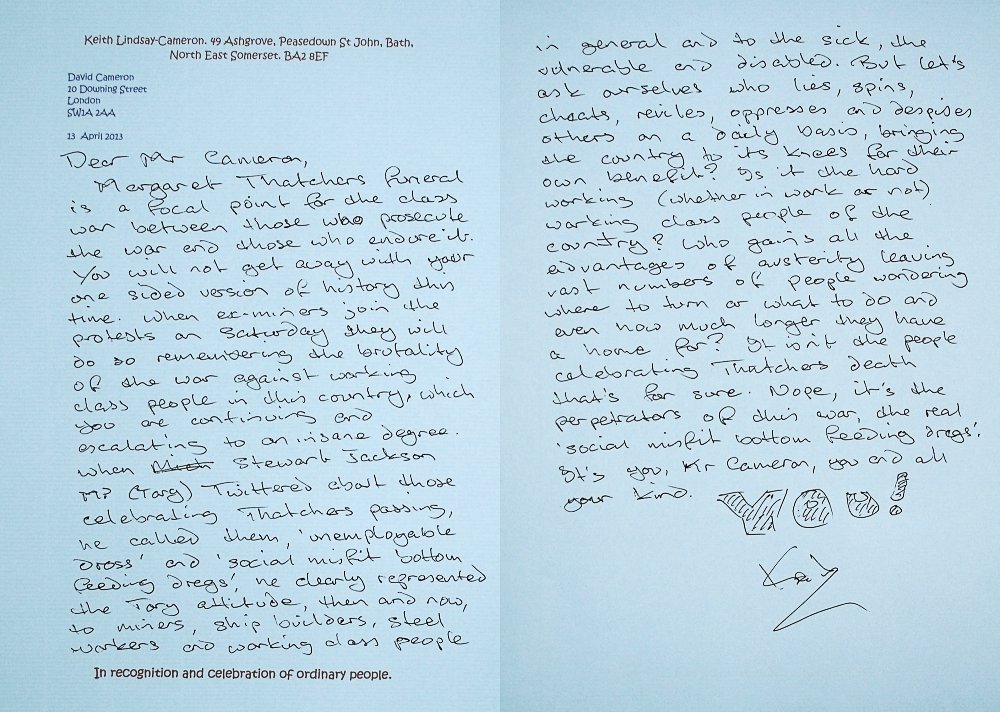 Keith Lindsay-Cameron. 49 Ashgrove, Peasedown St John, Bath,
North East Somerset. BA2 8EF
David Cameron
10 Downing Street
London
SW1A 2AA
13 April 2013
Dear Mr Cameron,
Margaret Thatchers funeral
is a focal point for the class
war between those who prosecute
the war and those who endure it.
You will not get away with your
one sided version of history this
time. When ex-miners join the
protests on Saturday they will
do so remembering the brutality
of the war against working
class people in this country, which
you are continuing and
escalating to an insane degree.
When Stewart Jackson
MP (Tory) Twittered about those
celebrating Thatchers passing,
he called them, 'unemployable
dross' and 'social misfit bottom
feeding dregs', he clearly represented
the Tory attitude, then and now,
to miners, ship builders, steel
workers and working class people
In recognition and celebration of ordinary people.
in general and to the sick, the
vulnerable and disabled. But let's
ask ourselves who lies, spins,
cheats, reviles, oppresses and despises
others on a daily basis, bringing
the country to its knees for their
own benefit? Is it the hard
working (whether in work or not)
working class people of the
country? Who gains all the
advantages of austerity leaving
vast numbers of people wondering
where to turn or what to do and
even how much longer they have
a home for? It isn't the people
celebrating Thatchers death
that's for sure. Nope, it's the
perpetrators of this war, the real
'social misfit bottom feeding dregs'.
It's you, Mr Cameron, you and all
your kind. YOU!